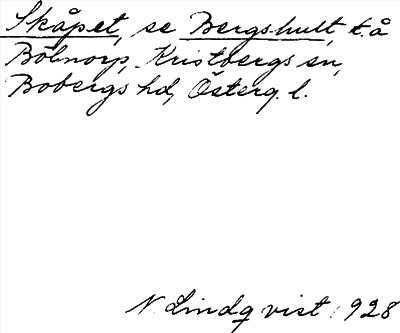 Skåpet, se Bergshult, t. å
Bölnorp, Kristbergs sn,
Bobergs hd, Österg. l.
N. Lindqvist 1928